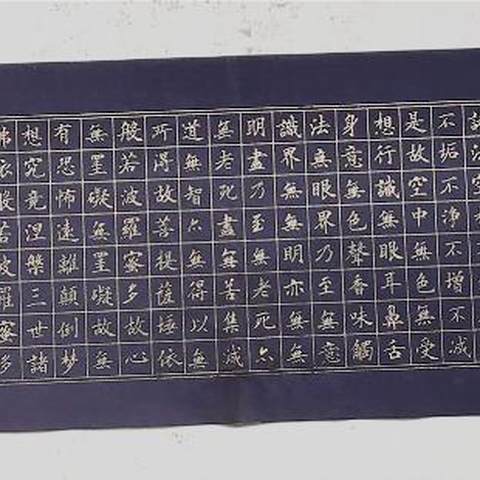 不垢不淨不增不减
是故空中無色無受
想行識無眼耳鼻舌
身意無色聲香味觸
法無眼界乃至無意
識界無無明亦無無
明盡乃至無老死亦
無老死盡無苦集滅
道無智亦無得以無
所得故菩提薩埵依
般若波羅蜜多故心
無罣礙無罣礙故無
有恐怖遠離顛倒夢
想究竟涅槃三世諸
佛依般若波羅蜜多